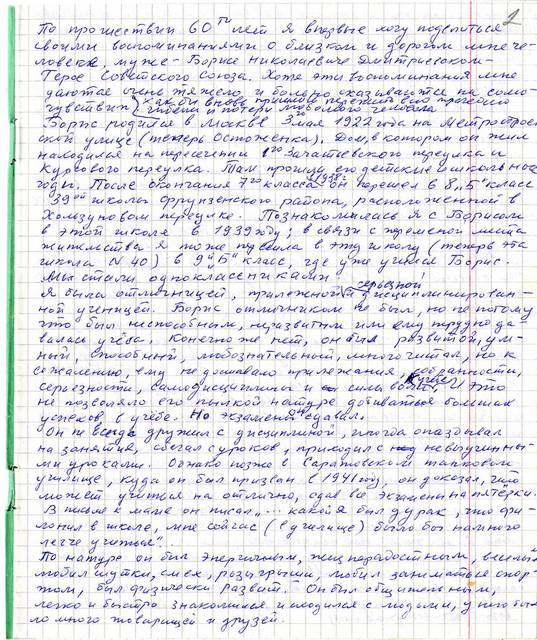 2
По прошествии 60ти лет я впервые могу поделиться
своими воспоминаниями о близком и дорогом мне че-
ловеке, муже - Борисе Николаевиче Дмитриевском -
Герое Советского Союза. Хотя эти воспоминания мне
даются очень тяжело и больно сказываются на само-
чувствии, как бы вновь пришлось пережить всю трагедию
гибели и потери любимого человека.
Борис родился в Москве 3 мая 1922 года на Метростроев-
ской улице (теперь Остоженка). Дом, в котором он жил
находился на пересечении 1го Зачатьевского переулка и
Курсового переулка. Там прошли его детские и школьные
годы. После окончания 7го класса он перешел в 8 „Б" класс
39ой школы Фрунзенского района, расположенной в
Хользуновом переулке. Познакомилась я с Борисом
в этой школе в 1939 году; в связи с переменой места
жительства я тоже пришла в эту школу (теперь эта
школа N 40) в 9 „Б" класс, где уже учился Борис.
Мы стали одноклассниками.
Я была отличницей, прилежной, серьезной, дисциплинирован-
ной ученицей. Борис отличником не был, но не потому
что был неспособным, неразвитым или ему трудно да-
валась учеба. Конечно же нет, он был развитой, ум-
ный, способный, любознательный, много читал, но к
сожалению, ему не доставало прилежания, собранности,
серьезности, самодисциплины и силы воли. Это
не позволяло его пылкой натуре добиваться больших
успехов в учебе. Но экзамены сдавал.
Он не всегда дружил с дисциплиной, иногда опаздывал
на занятия, сбегал с уроков, приходил с невыученны-
ми уроками. Однако позже в Саратовском танковом
училище, куда он был призван в 1941 году, он доказал, что
может учиться на отлично, сдав все экзамены на пятерки.
В письме к маме он писал „... какой я был дурак, что фи-
лонил в школе, мне сейчас (в училище) было бы намного
легче учиться"..
По натуре он был энергичным, жизнерадостным, веселым
любил шутки, смех, розыгрыши, любил заниматься спор-
том, был физически развит. Он был общительным,
легко и быстро знакомился и сходился с людьми, у него бы-
ло много товарищей и друзей.